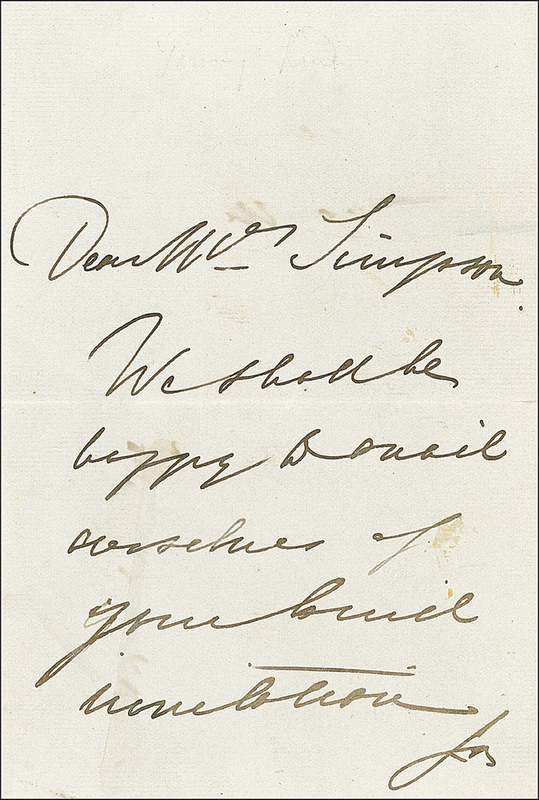 Dear Mrs Simpson.
We shall be
happy to avail
ourselves of
your kind
invitation
for